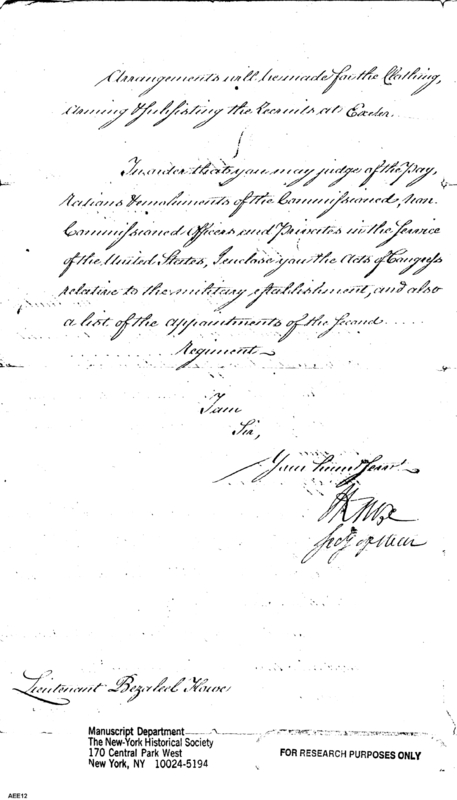 Arrangements will be made for the Clothing,
arming & subsisting the Recruits at Exeter.
In order that you may judge of the Pay,
Rations & emoluments of the Commissioned, non
Commissioned Officers and Privates in the Service
of the United States, I enclose you the Acts of Congress
relative to the military establishment, and also
a list of the appointments of the second
Regiment
I am
Sir,
Your hum Serv
H Knox
Secy of War
Lieutenant Bezaleel Howe
Manuscript Department
The New-York Historical Society
170 Central Park West
New York, NY 10024-5194
FOR RESEARCH PURPOSES ONLY
AEE12